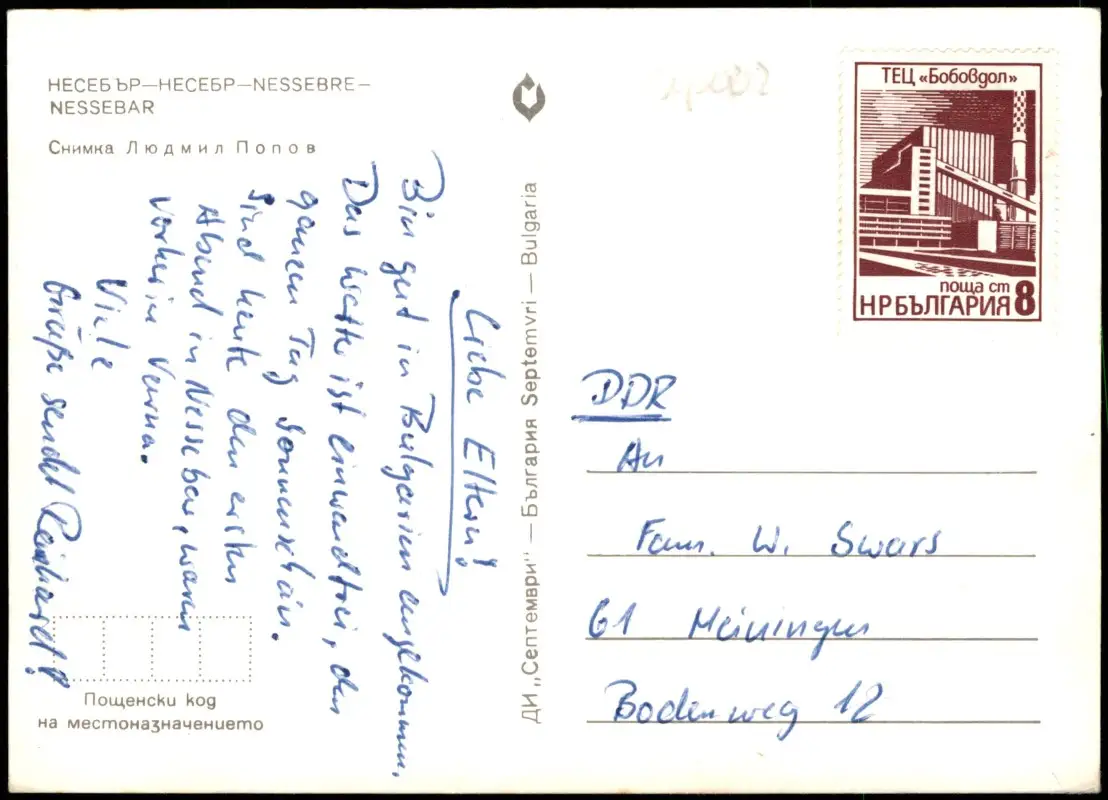 НЕСЕБЪР—НЕСЕБР—NESSEBRE—
NESSEBAR
Снимка Людмил Попов
Liebe Eltern!
Bin gut in Bulgarien angekommen.
Das Wetter ist einwandfrei, den
ganzen Tag Sonnenschein.
Sind heute den ersten
Abend in Nessebar, waren
vorher in Varna.
Viele
Grüße sendet Reinhard!
Пощенски код
на местоназначението
ДИ „Септември" — България Septemvri — Bulgaria
ТЕЦ «Бобовдол»
поща ст
НР БЪЛГАРИЯ 8
DDR
An
Fam. W. Swars
61 Meiningen
Bodenweg 12